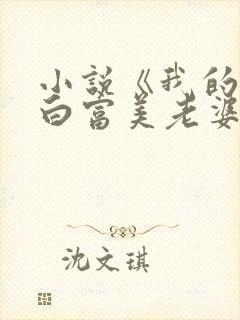 小说《我的
白富美老婆
沈文琪